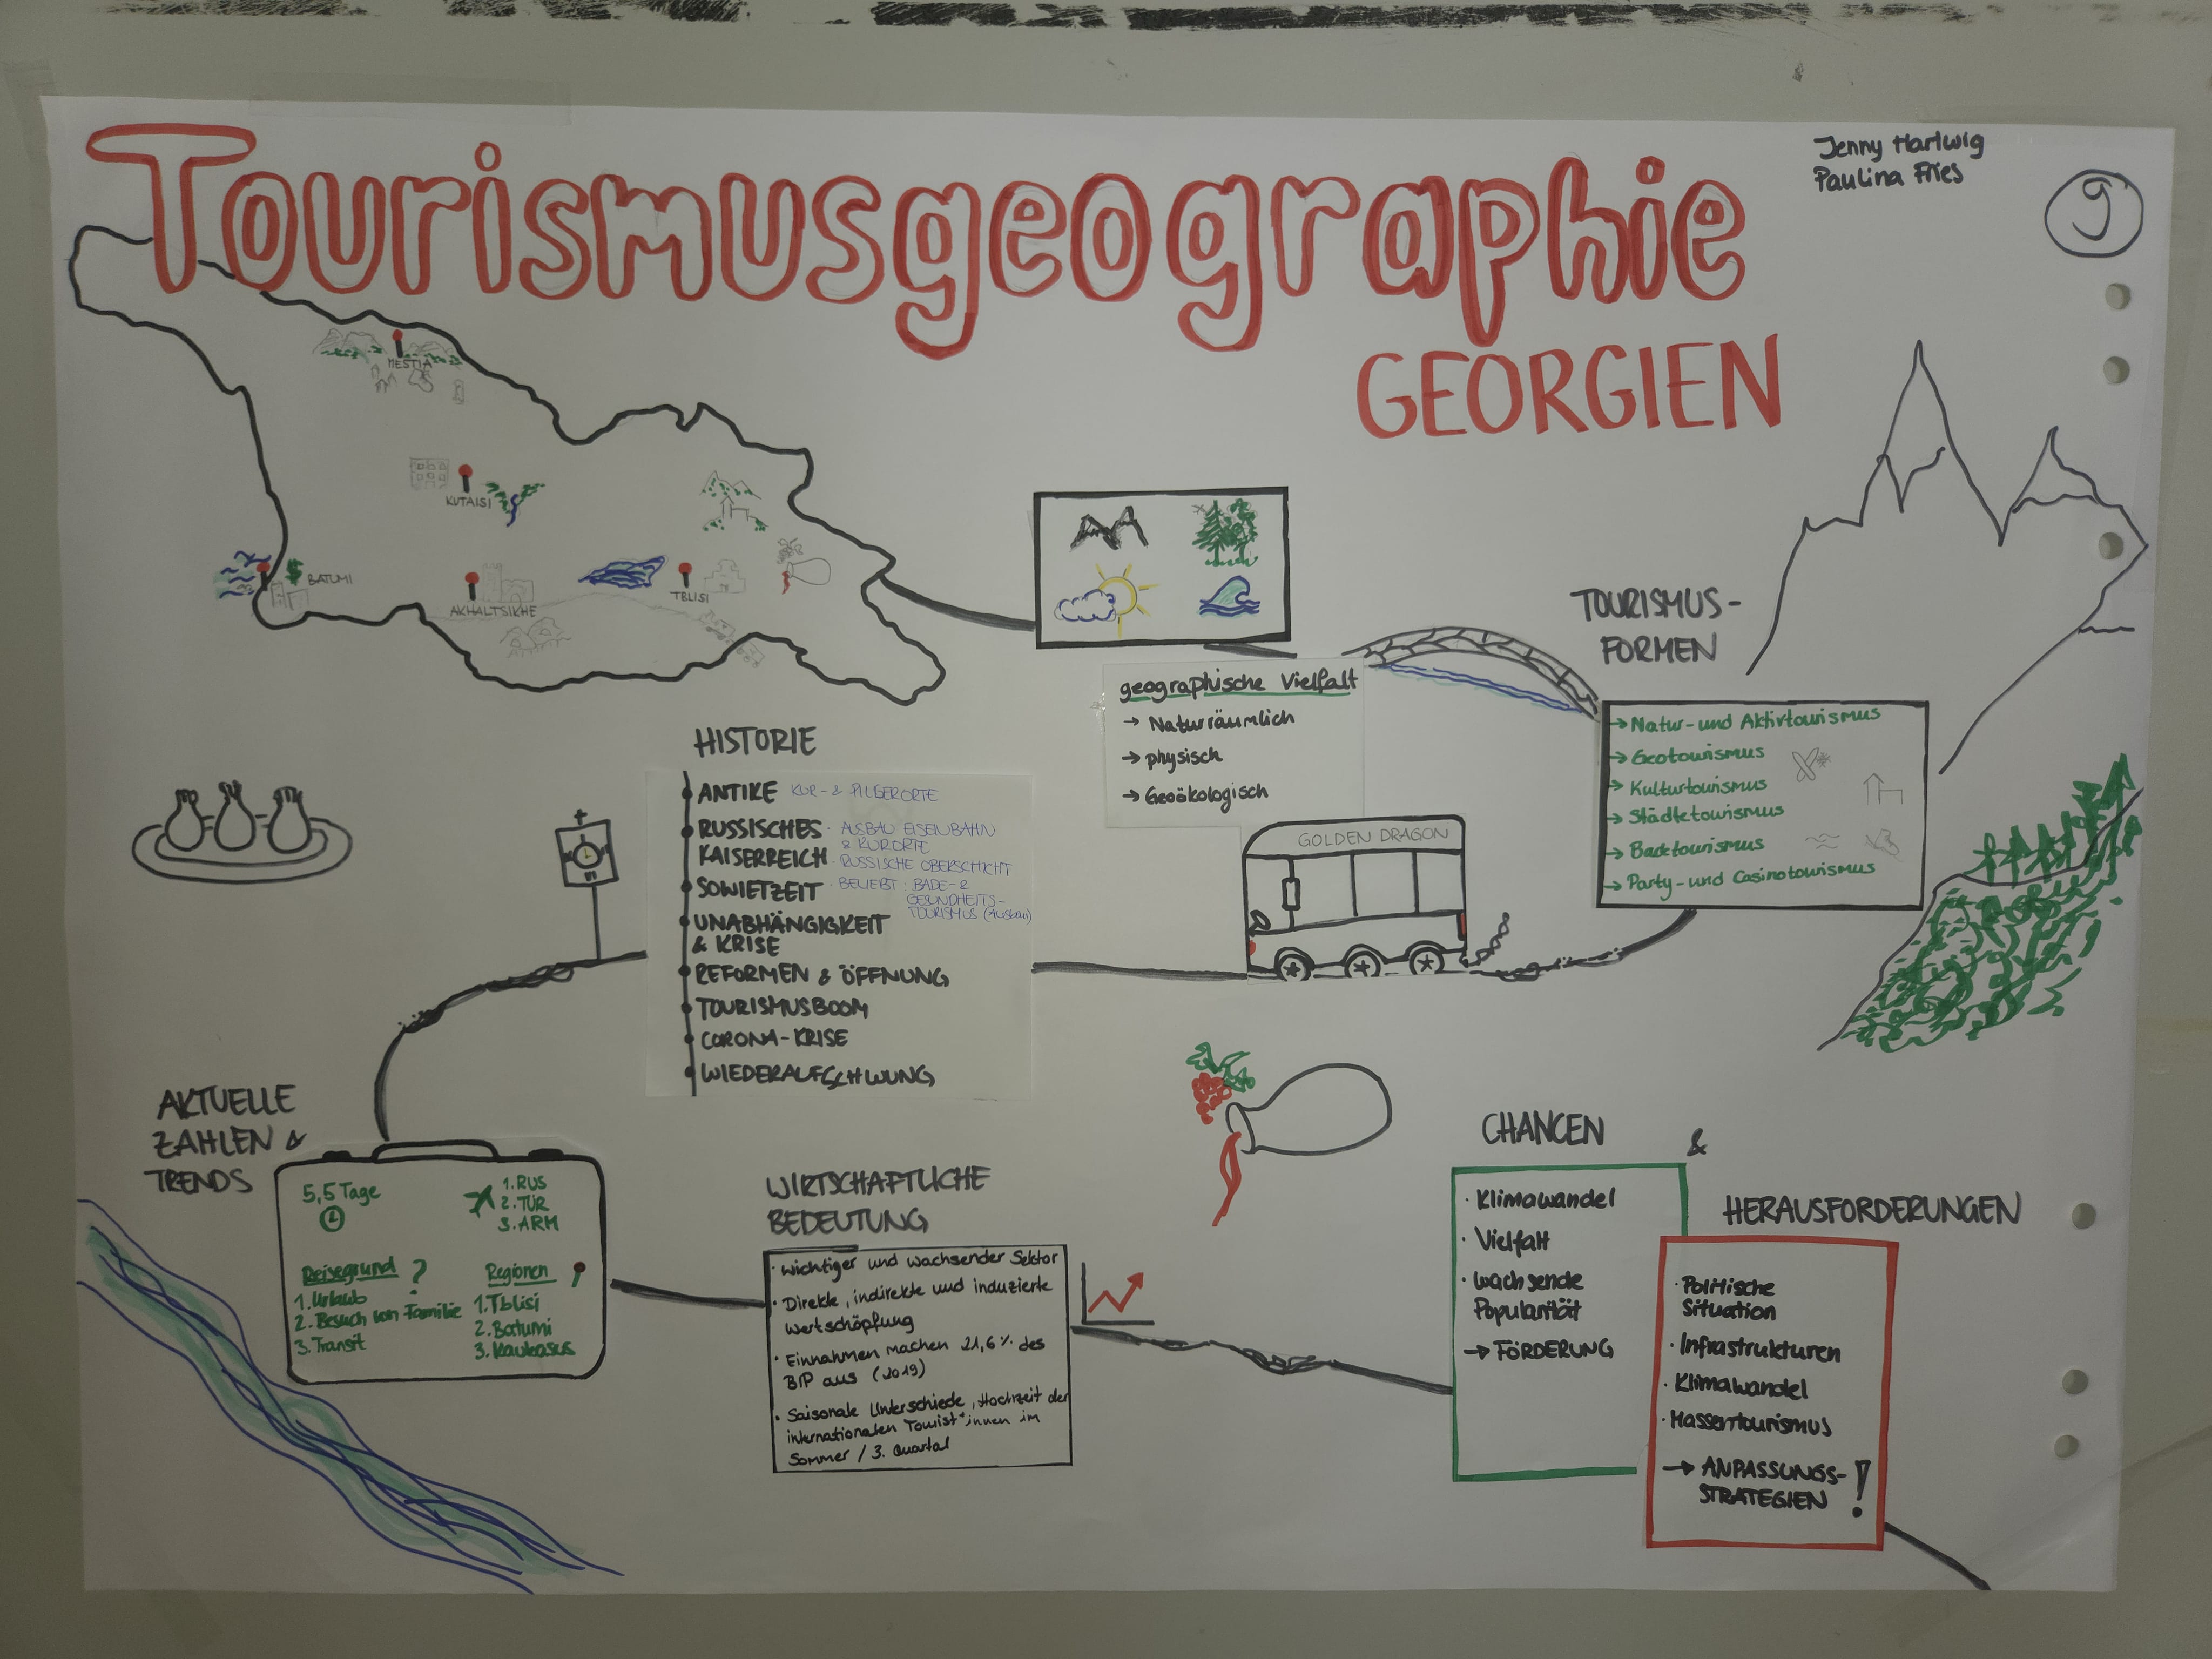 Tourismusgeographie
GEORGIEN
Jenny Hartwig
Paulina Fries
9
MESTIA
KUTAISI
BATUMI
AKHALTSIKHE
TBLISI
geographische Vielfalt
→ Naturräumlich
→ physisch
→ Geoökologisch
TOURISMUS-
FORMEN
→ Natur- und Aktivtourismus
→ Geotourismus
→ Kulturtourismus
→ Städtetourismus
→ Badetourismus
→ Party- und Casinotourismus
GOLDEN DRAGON
HISTORIE
ANTIKE KUR- & PILGERORTE
RUSSISCHES · AUSBAU EISENBAHN
& KURORTE
KAISERREICH · RUSSISCHE OBERSCHICHT
SOWIETZEIT · BELIEBT · BADE- &
GESUNDHEITS-
TOURISMUS (Ausbau)
UNABHÄNGIGKEIT
& KRISE
REFORMEN & ÖFFNUNG
TOURISMUSBOOM
CORONA-KRISE
WIEDERAUFSCHWUNG
AKTUELLE
ZAHLEN &
TRENDS
5,5 Tage
1. RUS
2. TÜR
3. ARM
Reisegrund ?
1. Urlaub
2. Besuch von Familie
3. Transit
Regionen
1. Tblisi
2. Batumi
3. Kaukasus
WIRTSCHAFTLICHE
BEDEUTUNG
· wichtiger und wachsender Sektor
· Direkte, indirekte und induzierte
Wertschöpfung
· Einnahmen machen 21,6% des
BIP aus (2019)
· Saisonale Unterschiede, Hochzeit der
internationalen Tourist*innen im
Sommer / 3. Quartal
CHANCEN &
· Klimawandel
· Vielfalt
· wachsende
Popularität
→ FÖRDERUNG
HERAUSFORDERUNGEN
· Politische
Situation
· Infrastrukturen
· Klimawandel
· Massentourismus
→ ANPASSUNGS-
STRATEGIEN !